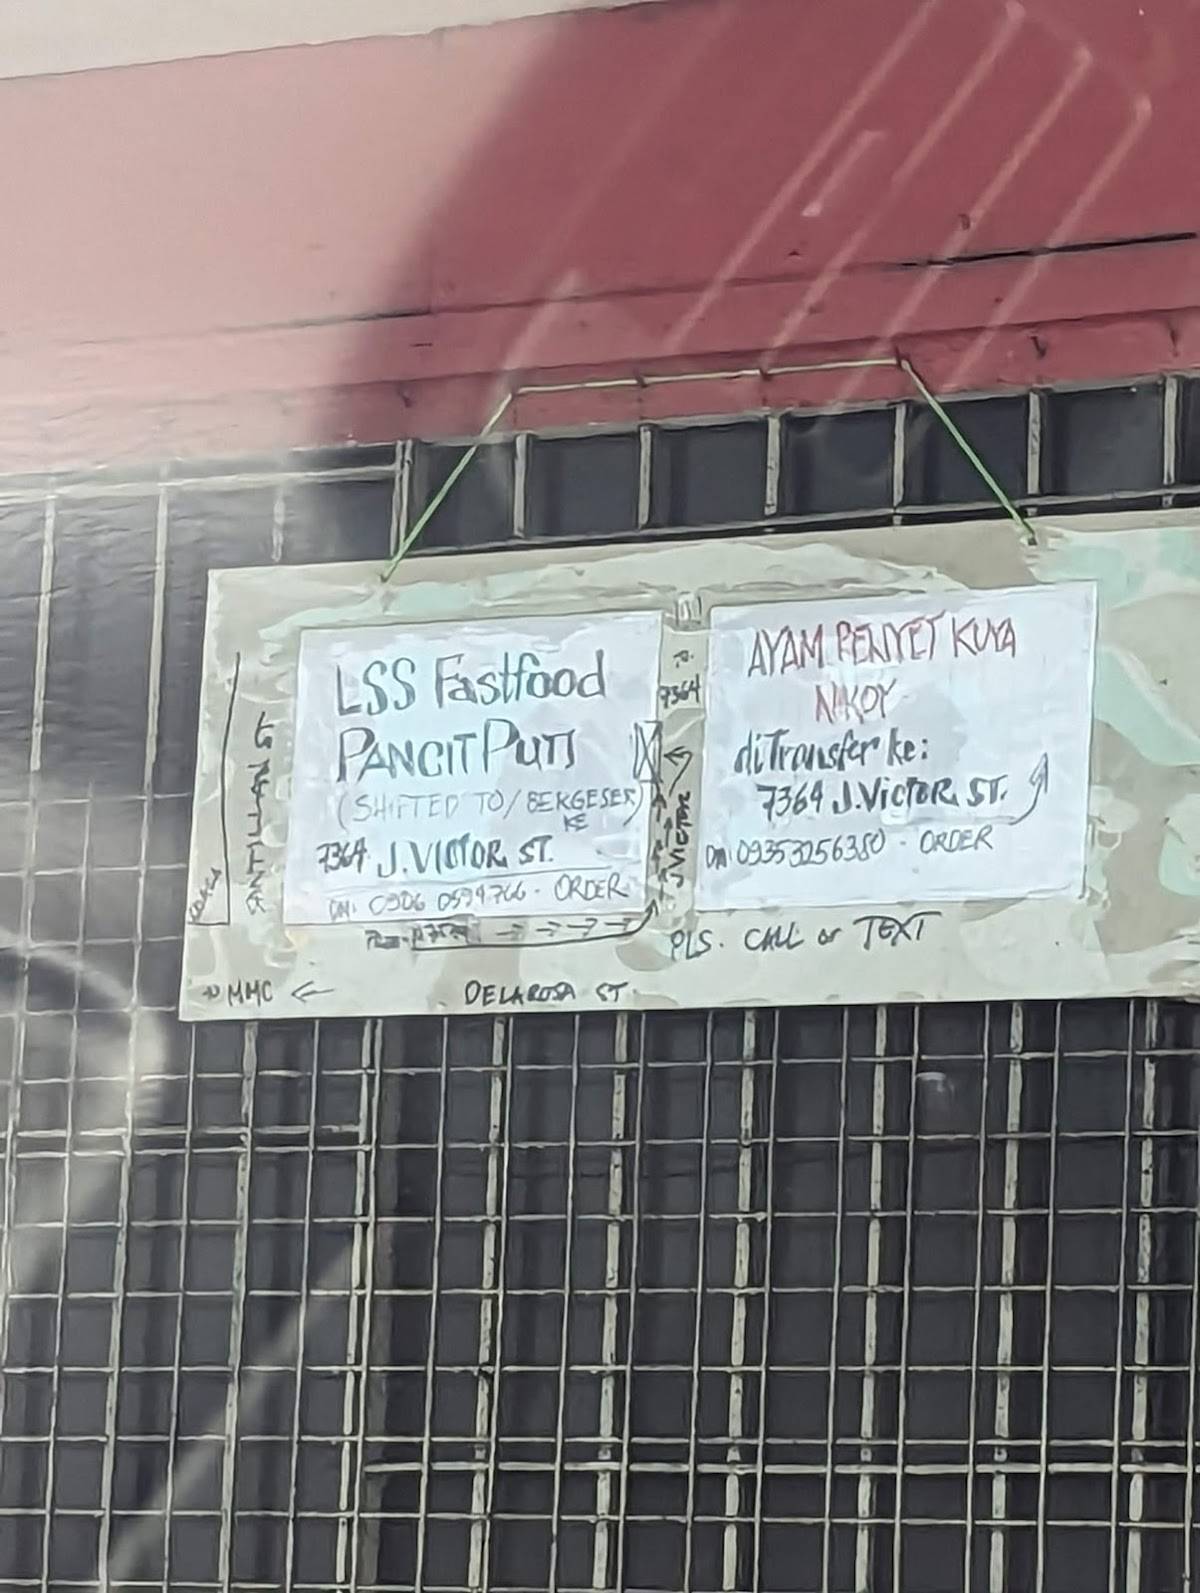 LSS Fastfood
PANCIT PUTI
(SHIFTED TO/BERGESER
KE
7364 J. VICTOR ST.
0906 0594766 - ORDER
7364
J. VICTOR
AYAM PENYET KUYA
NIKOY
diTransfer ke:
7364 J. VICTOR ST.
09353256380 - ORDER
PLS. CALL or TEXT
MMC ←
DELAROSA ST.